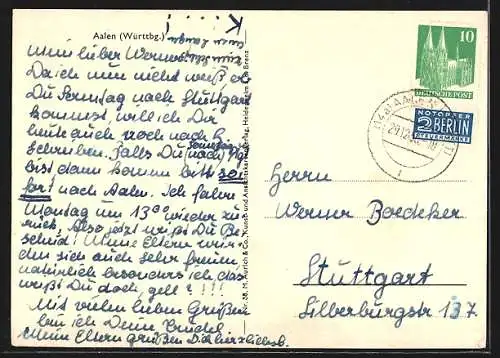 Aalen (Württbg.)
Mein lieber Werner!
Da ich nun nicht weiß ob
Du Sonntag nach Stuttgart
kommst, will ich Dir
heute auch noch nach
schreiben. Falls Du Sonntag (nach) Stg.
bist dann komm bitte so-
fort nach Aalen. Ich fahre
Montag um 13⁰⁰ wieder zu-
rück. Also jetzt weißt Du Be-
scheid! Meine Eltern wür-
den sich auch sehr freuen,
natürlich besonders ich das
weißt Du doch, gell?!!!
Mit vielen lieben Grüßen
bin ich Deine Traudel
Meine Eltern grüßen Dich herzlichst.
10
DEUTSCHE POST
NOTOPFER
2 BERLIN
STEUERMARKE
AALEN
Herrn
Werner Boedeker
Stuttgart
Silberburgstr 137